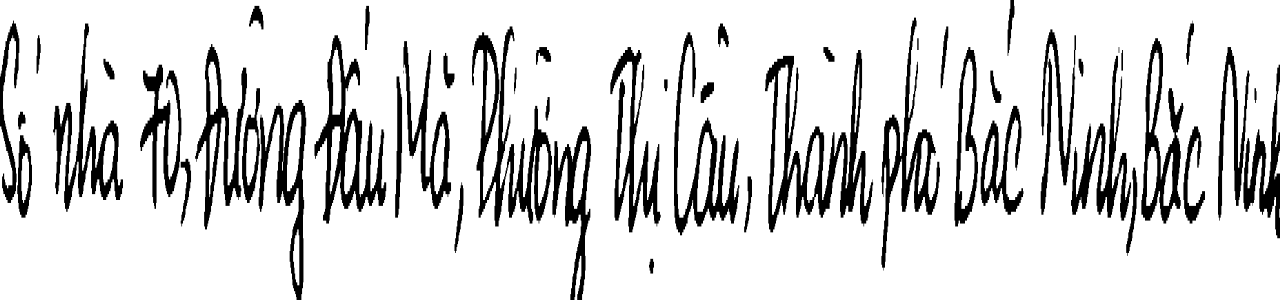 Số nhà 70, Đường Đấu Mã, Phường Thị Cầu, Thành phố Bắc Ninh, Bắc Ninh